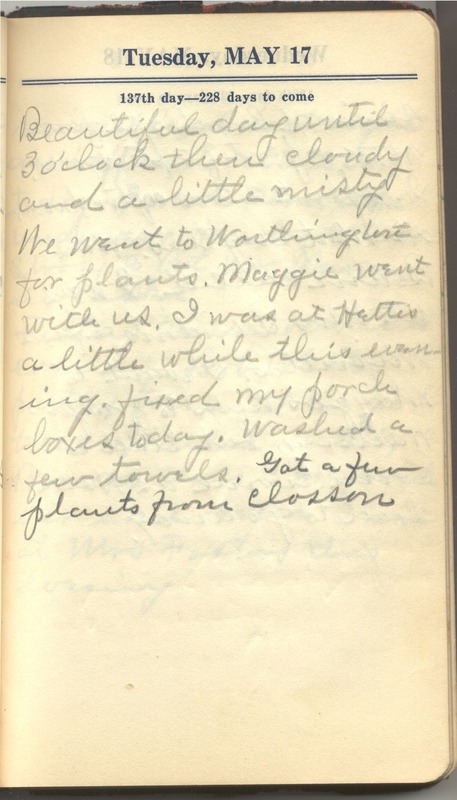 Tuesday, MAY 17
137th day—228 days to come
Beautiful day until
3 o'clock then cloudy
and a little misty
We went to Worthington
for plants. Maggie went
with us. I was at Hettes
a little while this even-
ing. fixed my porch
boxes today. Washed a
few towels. Got a few
plants from Closson